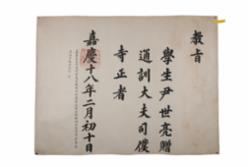 教旨
學生尹世亮贈
通訓大夫司僕
寺正者
嘉慶十八年二月初十日